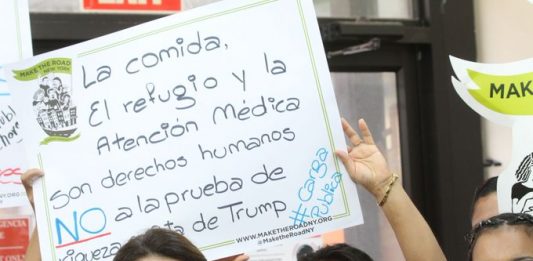 EXIT
MAKE THE ROAD
NEW YORK
La comida,
El refugio y la
Atención Médica
son derechos humanos
NO a la prueba de
de Trump
#Carga
Publica
WWW.MAKETHEROADNY.ORG
@MaketheRoadNY
MAKE